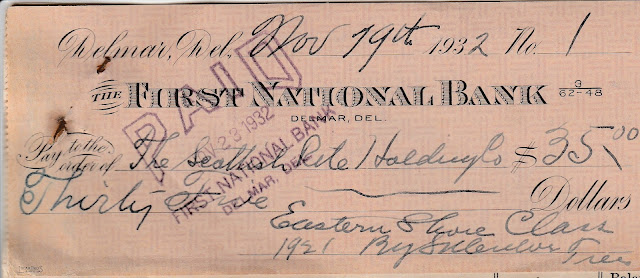 Delmar, Del., Nov 19th 1932 No. 1
THE FIRST NATIONAL BANK 3
62-48
DELMAR, DEL.
PAID
NOV 23 1932
FIRST NATIONAL BANK
DELMAR, DEL.
Pay to the
order of The Scottish Rite Holding Co $35.00
Thirty Five Dollars
Eastern Shore Class
1921 By Treas